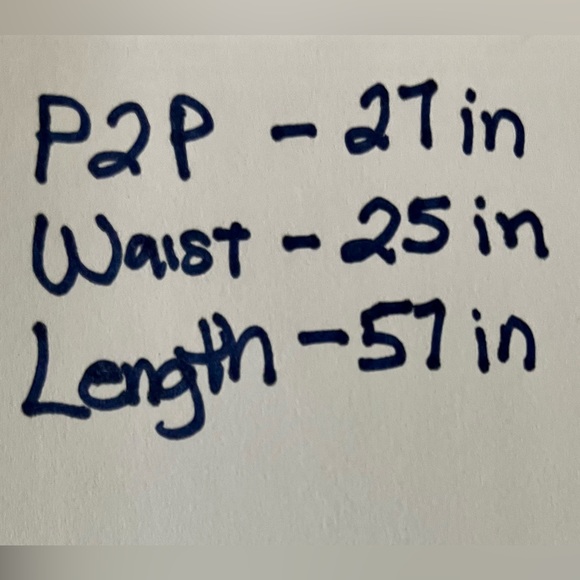 P2P - 27 in
Waist - 25 in
Length - 57 in